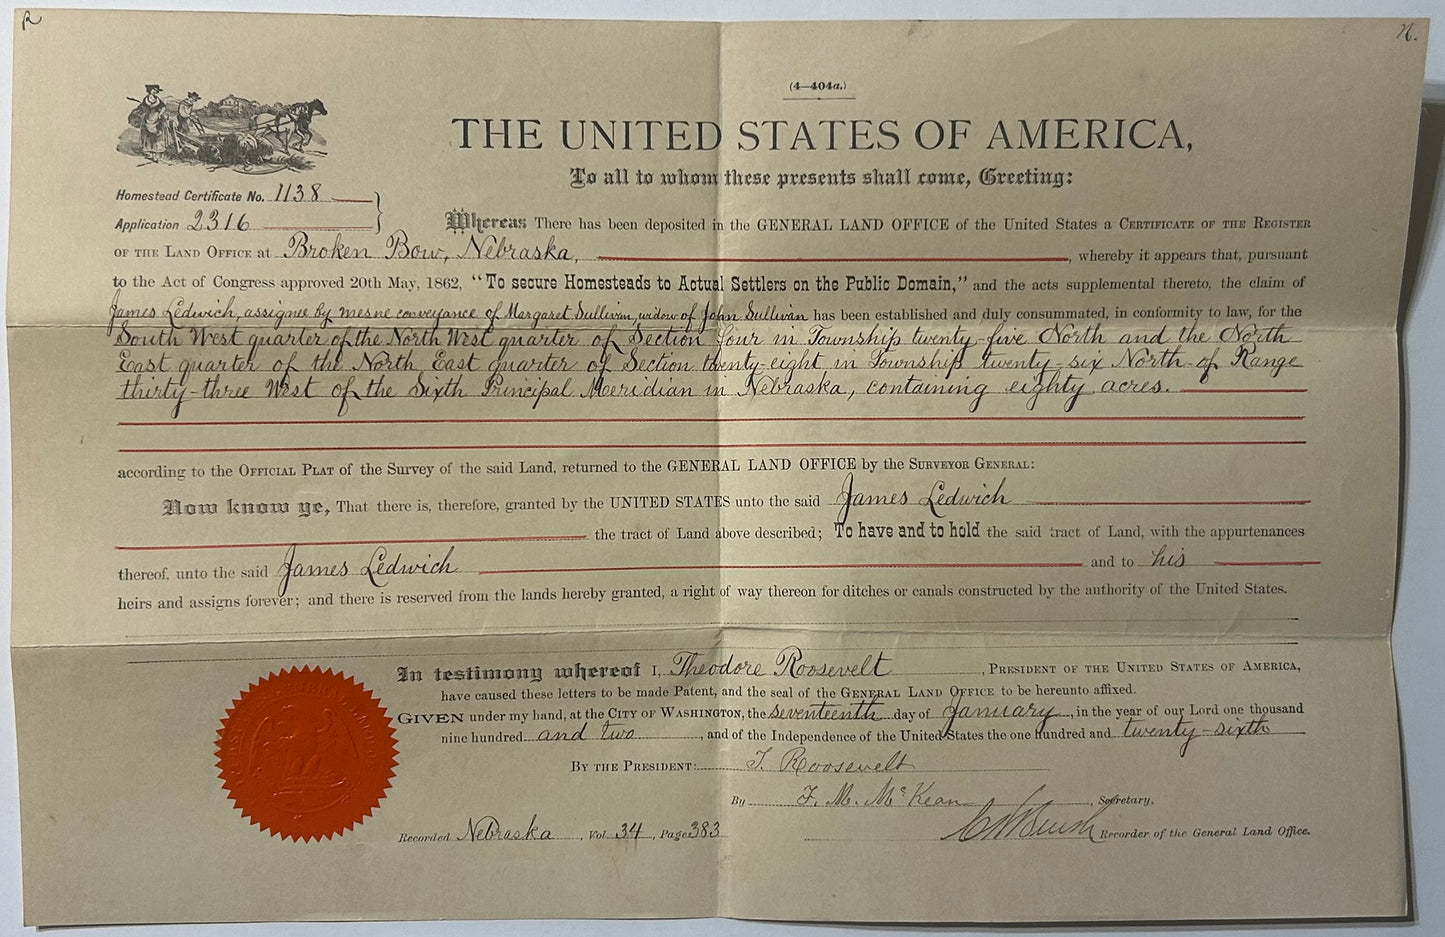 R
N.
(4—404a.)
THE UNITED STATES OF AMERICA,
To all to whom these presents shall come, Greeting:
Homestead Certificate No. 1138
Application 2316
Whereas There has been deposited in the GENERAL LAND OFFICE of the United States a CERTIFICATE OF THE REGISTER
OF THE LAND OFFICE at Broken Bow, Nebraska, , whereby it appears that, pursuant
to the Act of Congress approved 20th May, 1862, "To secure Homesteads to Actual Settlers on the Public Domain," and the acts supplemental thereto, the claim of
James Ledwich, assignee by mesne conveyance of Margaret Sullivan, widow of John Sullivan has been established and duly consummated, in conformity to law, for the
South West quarter of the North West quarter of Section four in Township twenty-five North and the North
East quarter of the North East quarter of Section twenty-eight in Township twenty-six North of Range
thirty-three West of the Sixth Principal Meridian in Nebraska, containing eighty acres.
according to the OFFICIAL PLAT of the Survey of the said Land, returned to the GENERAL LAND OFFICE by the SURVEYOR GENERAL:
Now know ye, That there is, therefore, granted by the UNITED STATES unto the said James Ledwich
the tract of Land above described; To have and to hold the said tract of Land, with the appurtenances
thereof, unto the said James Ledwich and to his
heirs and assigns forever; and there is reserved from the lands hereby granted, a right of way thereon for ditches or canals constructed by the authority of the United States.
In testimony whereof I, Theodore Roosevelt , PRESIDENT OF THE UNITED STATES OF AMERICA,
have caused these letters to be made Patent, and the seal of the GENERAL LAND OFFICE to be hereunto affixed.
GIVEN under my hand, at the CITY OF WASHINGTON, the seventeenth day of January, in the year of our Lord one thousand
nine hundred and two , and of the Independence of the United States the one hundred and twenty-sixth
BY THE PRESIDENT: T. Roosevelt
By F. M. McKean , Secretary.
Recorded Nebraska , Vol. 34 , Page 383
Recorder of the General Land Office.